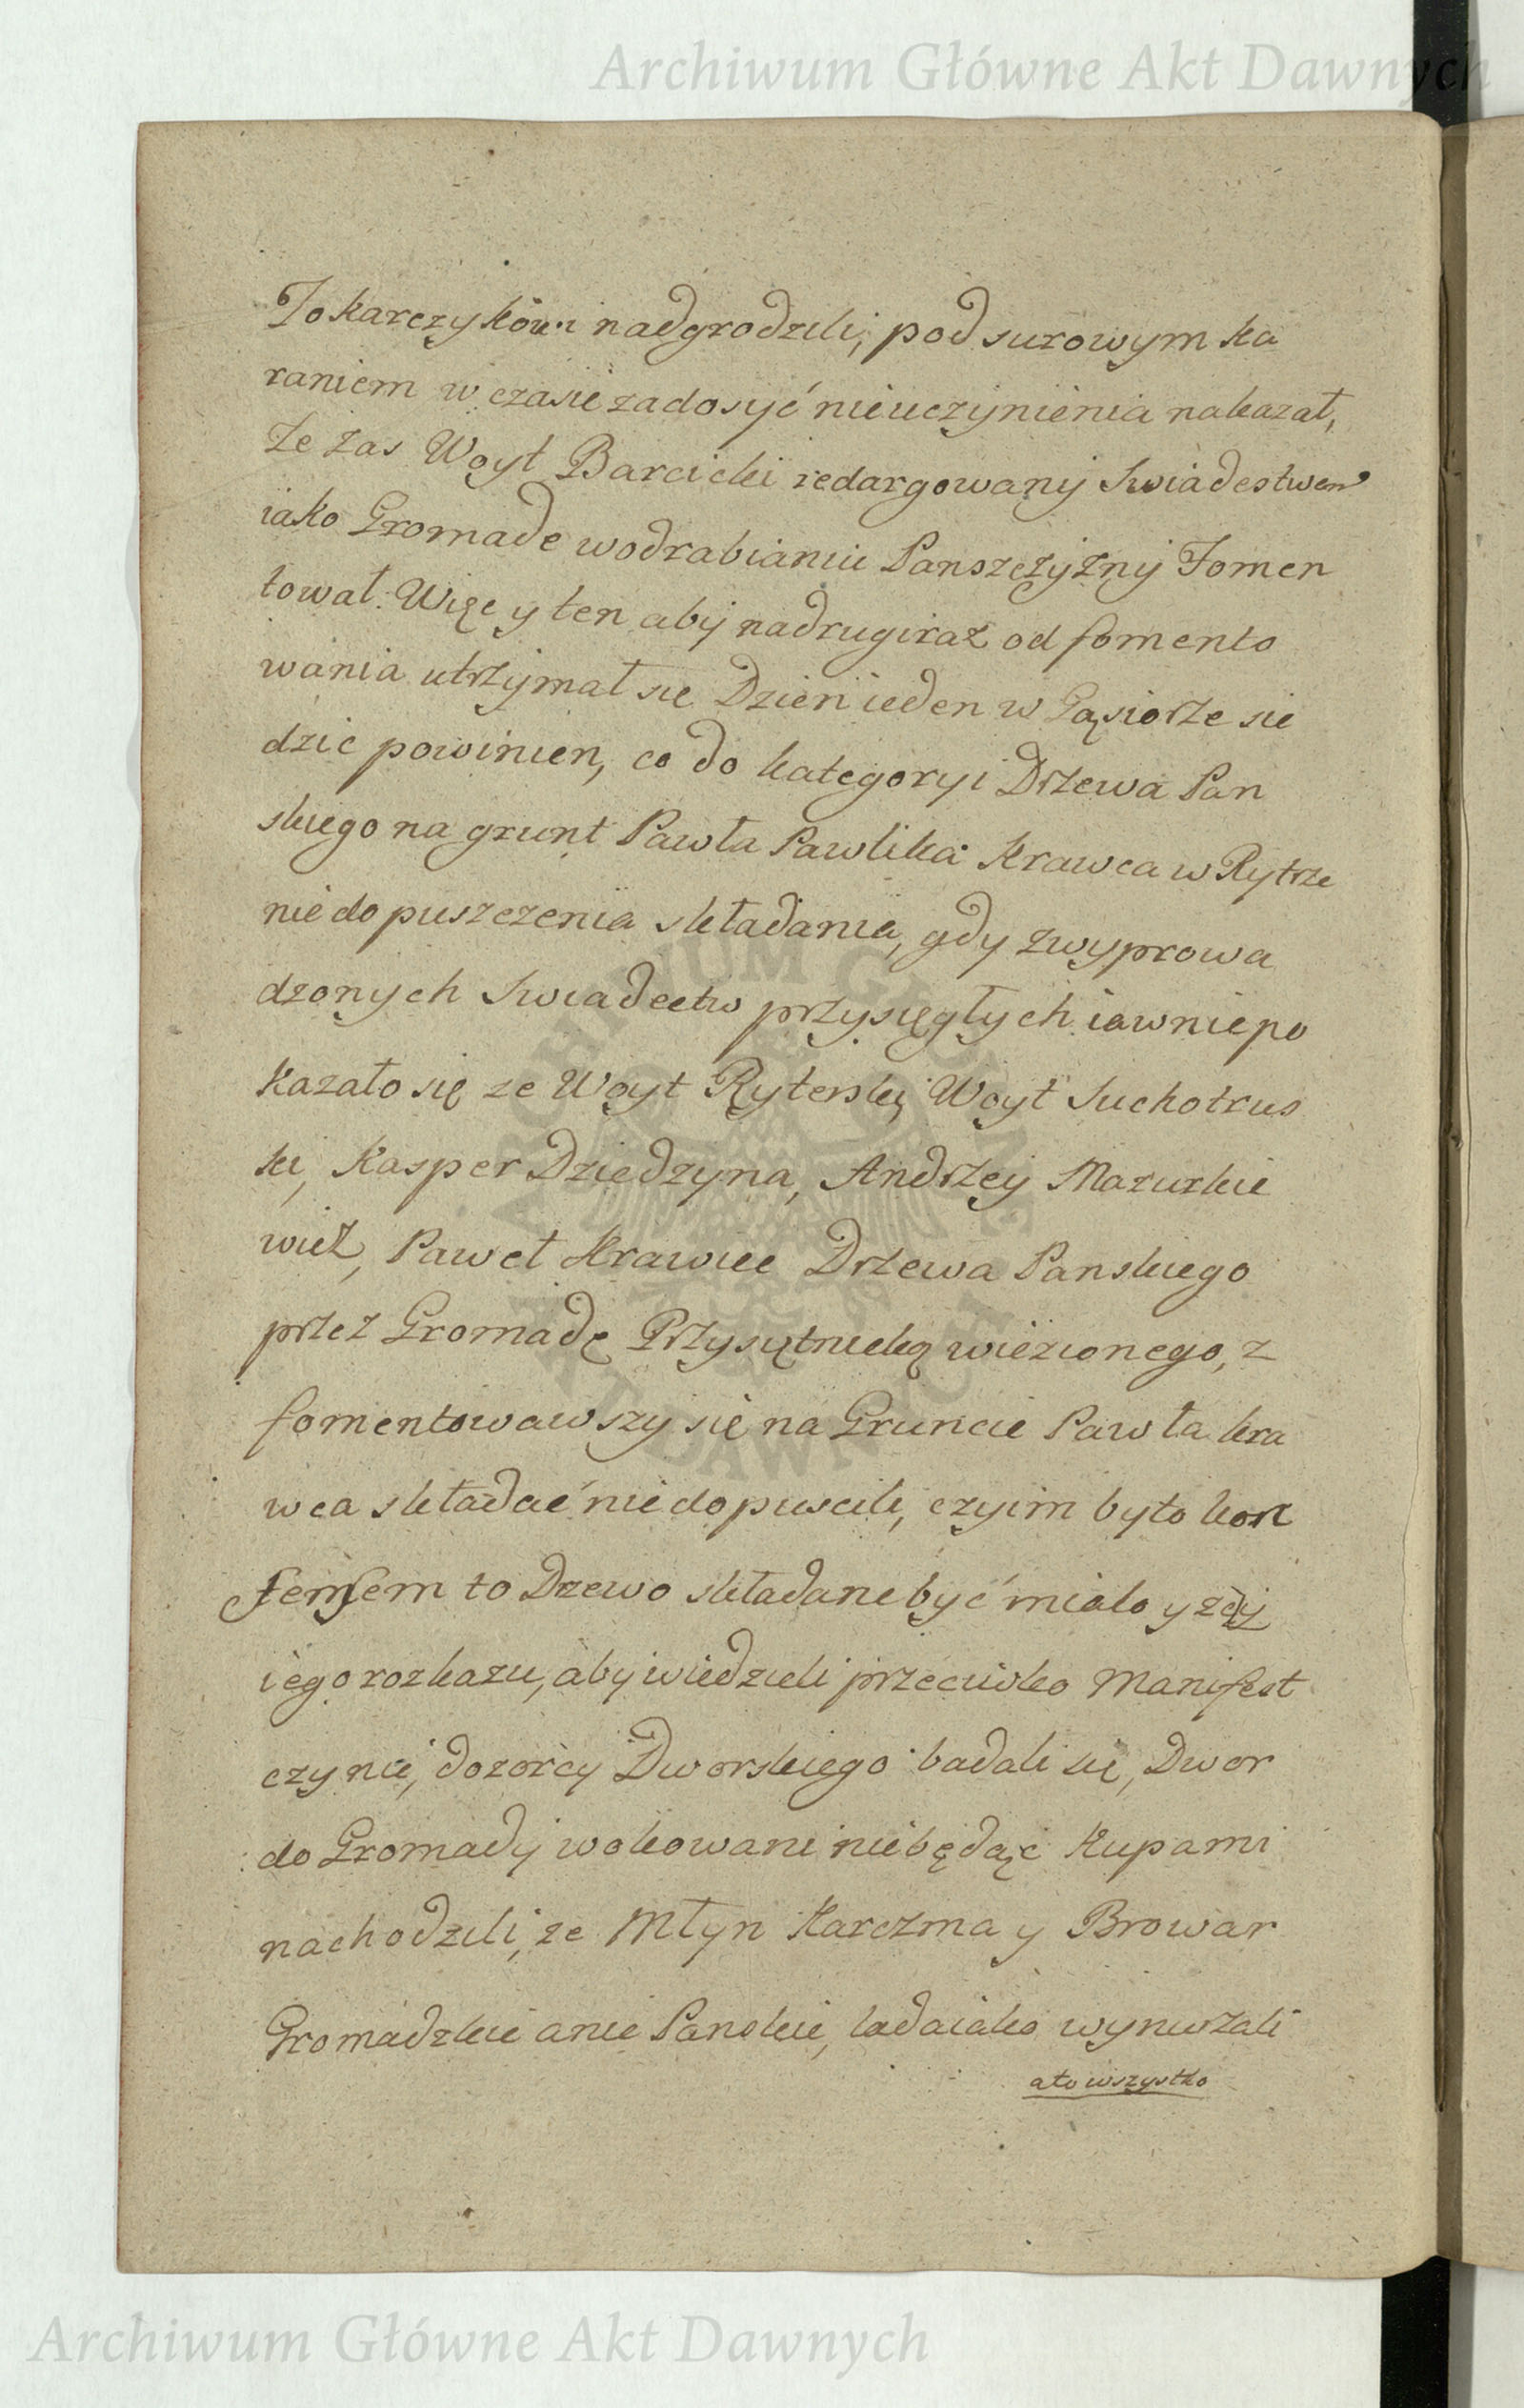 Archiwum Główne Akt Dawnych
Tokarczykówi nadgrodzili, pod surowym ka
raniem w czasie zadosyć nieuczynienia nakazał,
Ze zas Woyt Barcicki redargowany Swiadestwem
iako Gromade wodrabianiu Panszczyzny Fomen
tował. Więc y ten aby nadrugiraz od fomento
wania utrzymał się Dzień ieden w Gąsiorze sie
dzic powinien, co do kategoryi Drzewa Pan
skiego na grunt Pawła Pawlika Krawca w Rytrze
niedopuszczenia składania, gdy zwyprowa
dzonych Swiadectw przysięgłych iawnie po
kazało się ze Woyt Ryterski, Woyt Suchotrus
ki, Kasper Dziedzyna, Andrzey Mazurkie
wicz, Paweł Krawiec Drzewa Panskiego
przez Gromadę Przysiętnicką wiezionego, z
fomentowawszy się na Gruncie Pawła kra
wca składać niedopuscili, czyim było kon
sensem to Drzewo składane być miało y zczy
iego rozkazu, aby wiedzieli przeciwko Manifest
czynić, dozorcy Dworskiego badali się, Dwor
do Gromady wokowani niebędąc Kupami
nachodzili, ze Młyn Karczma y Browar
Gromadzkie anie Panskie, ladaiako wynurzali
ato wszystko
Archiwum Główne Akt Dawnych